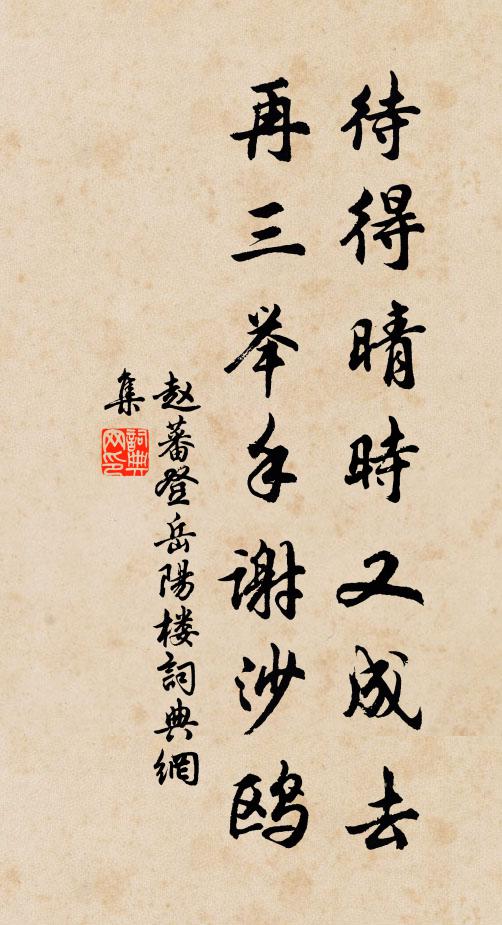 待得晴時又成去
再三举手谢沙鸥
赵蕃登岳陽楼詞典網
集
詞典網印